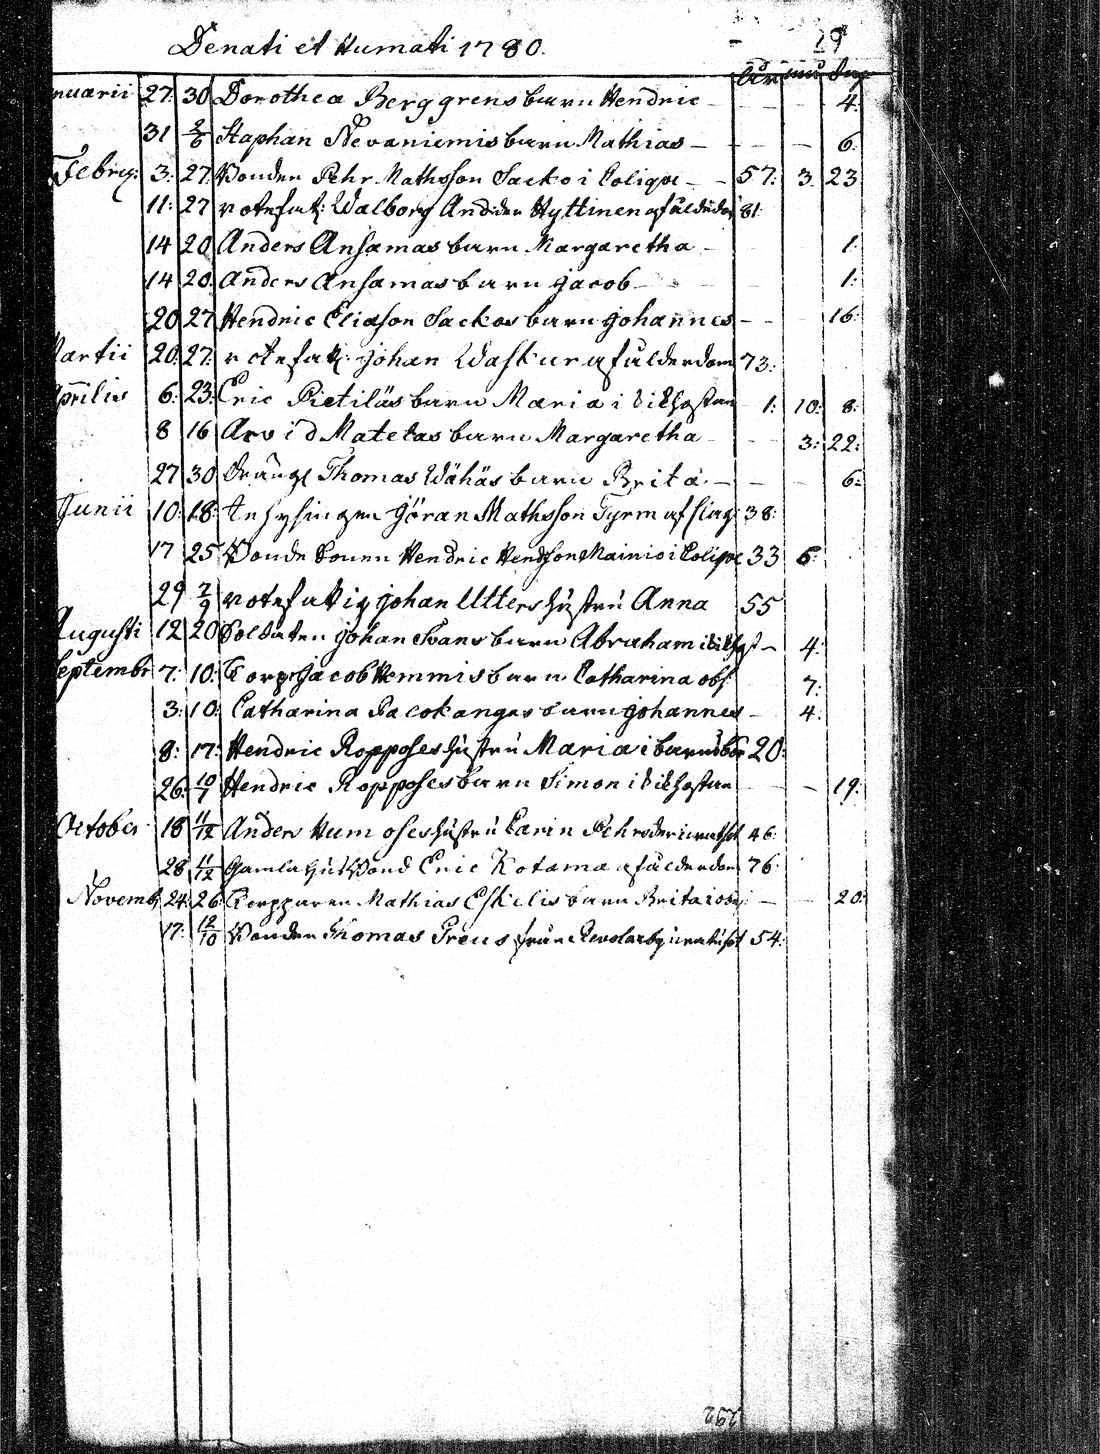 Denati et Humati 1780.
29
åår mån dag
nuarii 27: 30 Dorothea Berggrens barn Hendric - - - 4:
31 2/6 Staphan Nevaniemis barn Mathias - - - 6:
Febry: 3: 27: Bonden Pehr Mathsson Sacko i Colique - - 57: 3: 23
11: 27 rotefatt: Walborg Andsdr Hyttinen af ålderdom 81:
14 20 Anders Ansamas barn Margaretha - 1:
14 20: Anders Ansamas barn Jacob - 1:
20 27 Hendric Eliasson Sackos barn Johannes - - 16:
Martii 20: 27: rotefatt: Johan Waskur af ålderdom 73:
Aprilis 6: 23: Eric Pietiläs barn Maria i kikhostan 1: 10: 8:
8 16 Arvid Matelas barn Margaretha - 3: 22:
27 30 Dräng: Thomas Wähäs barn Brita - - 6:
Junii 10: 18: Inhysingen Göran Mathsson Tyrm af slag: 38:
17 25 Bonde Sonen Hendric Hendsson Mainio i Colique 33 6:
29 2/9 rotefattig Johan Utters hustru Anna 55
Augusti 12 20 Soldaten Johan Svans barn Abraham i kikhost - 4:
Septembr 7: 10: Corpr Jacob Hemmis barn Catharina obs: 7:
3: 10: Catharina Pacokangas barn Johannes - 4:
8: 17: Hendric Ropposes hustru Maria i barnsbör 20:
26: 10/7 Hendric Ropposes barn Simon i kikhostan - - 19:
October 18 11/12 Anders Humoses hustru Carin Pehrsder i 46:
28 11/12 Gamla Bond Eric Kotama af ålderdom 76:
Novemb: 24: 26: Mathias Eskelis barn Brita - - 20:
17: 12/10 Bonden Thomas Preus från Revolaxby i 54:
292